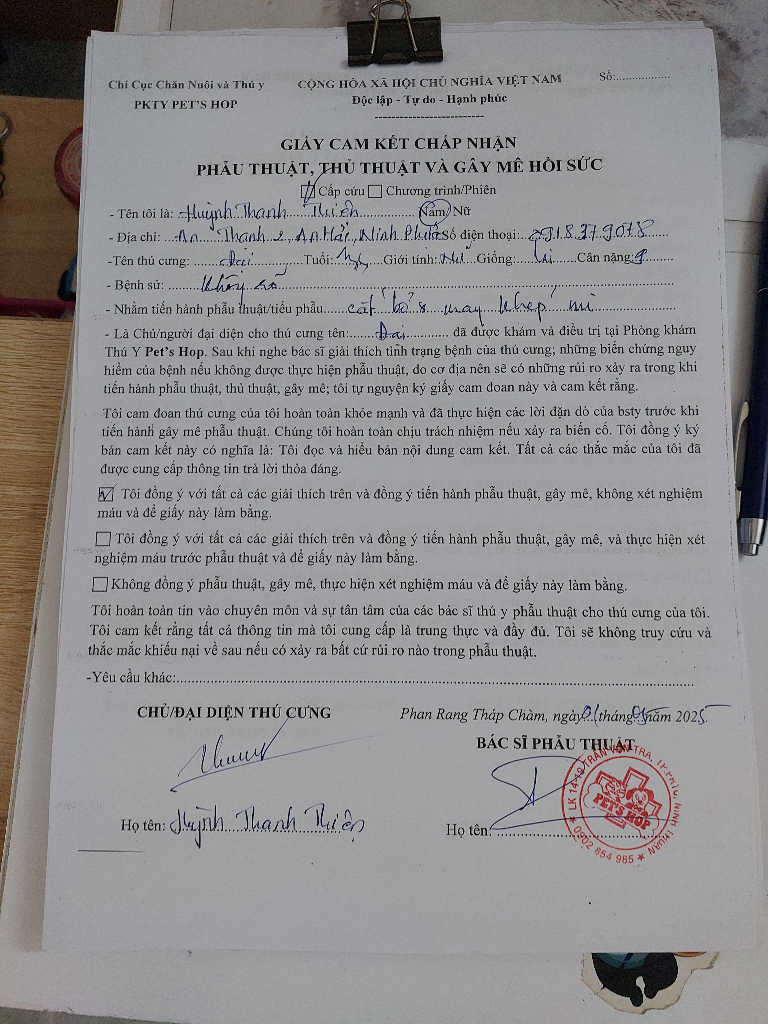 Chi Cục Chăn Nuôi và Thú y
PKTY PET'S HOP
CỘNG HÒA XÃ HỘI CHỦ NGHĨA VIỆT NAM
Độc lập - Tự do - Hạnh phúc
Số:..................
GIẤY CAM KẾT CHẤP NHẬN
PHẪU THUẬT, THỦ THUẬT VÀ GÂY MÊ HỒI SỨC
Cấp cứu Chương trình/Phiên
- Tên tôi là: Huỳnh Thanh Thiện Nam/ Nữ
- Địa chỉ: An Thạnh 2, An Hải, Ninh Phước Số điện thoại: 0918379078
-Tên thú cưng: Đai Tuổi: Giới tính: Giống: lai Cân nặng: 9
- Bệnh sử: không có
- Nhằm tiến hành phẫu thuật/tiểu phẫu cắt bỏ & may khép mi
- Là Chủ/người đại diện cho thú cưng tên: Đai đã được khám và điều trị tại Phòng khám
Thú Y Pet's Hop. Sau khi nghe bác sĩ giải thích tình trạng bệnh của thú cưng; những biến chứng nguy
hiểm của bệnh nếu không được thực hiện phẫu thuật, do cơ địa nên sẽ có những rủi ro xảy ra trong khi
tiến hành phẫu thuật, thủ thuật, gây mê; tôi tự nguyện ký giấy cam đoan này và cam kết rằng.
Tôi cam đoan thú cưng của tôi hoàn toàn khỏe mạnh và đã thực hiện các lời dặn dò của bsty trước khi
tiến hành gây mê phẫu thuật. Chúng tôi hoàn toàn chịu trách nhiệm nếu xảy ra biến cố. Tôi đồng ý ký
bản cam kết này có nghĩa là: Tôi đọc và hiểu bản nội dung cam kết. Tất cả các thắc mắc của tôi đã
được cung cấp thông tin trả lời thỏa đáng.
Tôi đồng ý với tất cả các giải thích trên và đồng ý tiến hành phẫu thuật, gây mê, không xét nghiệm
máu và để giấy này làm bằng.
Tôi đồng ý với tất cả các giải thích trên và đồng ý tiến hành phẫu thuật, gây mê, và thực hiện xét
nghiệm máu trước phẫu thuật và để giấy này làm bằng.
Không đồng ý phẫu thuật, gây mê, thực hiện xét nghiệm máu và để giấy này làm bằng.
Tôi hoàn toàn tin vào chuyên môn và sự tân tâm của các bác sĩ thú y phẫu thuật cho thú cưng của tôi.
Tôi cam kết rằng tất cả thông tin mà tôi cung cấp là trung thực và đầy đủ. Tôi sẽ không truy cứu và
thắc mắc khiếu nại về sau nếu có xảy ra bất cứ rủi ro nào trong phẫu thuật.
-Yêu cầu khác:
CHỦ/ĐẠI DIỆN THÚ CƯNG
Phan Rang Tháp Chàm, ngày 01 tháng 05 năm 2025
BÁC SĨ PHẪU THUẬT
Họ tên: Huỳnh Thanh Thiện
Họ tên:
LK 14-19 TRẦN VĂN TRÀ, TP.PRTC, NINH THUẬN
PET'S HOP
0902 654 985